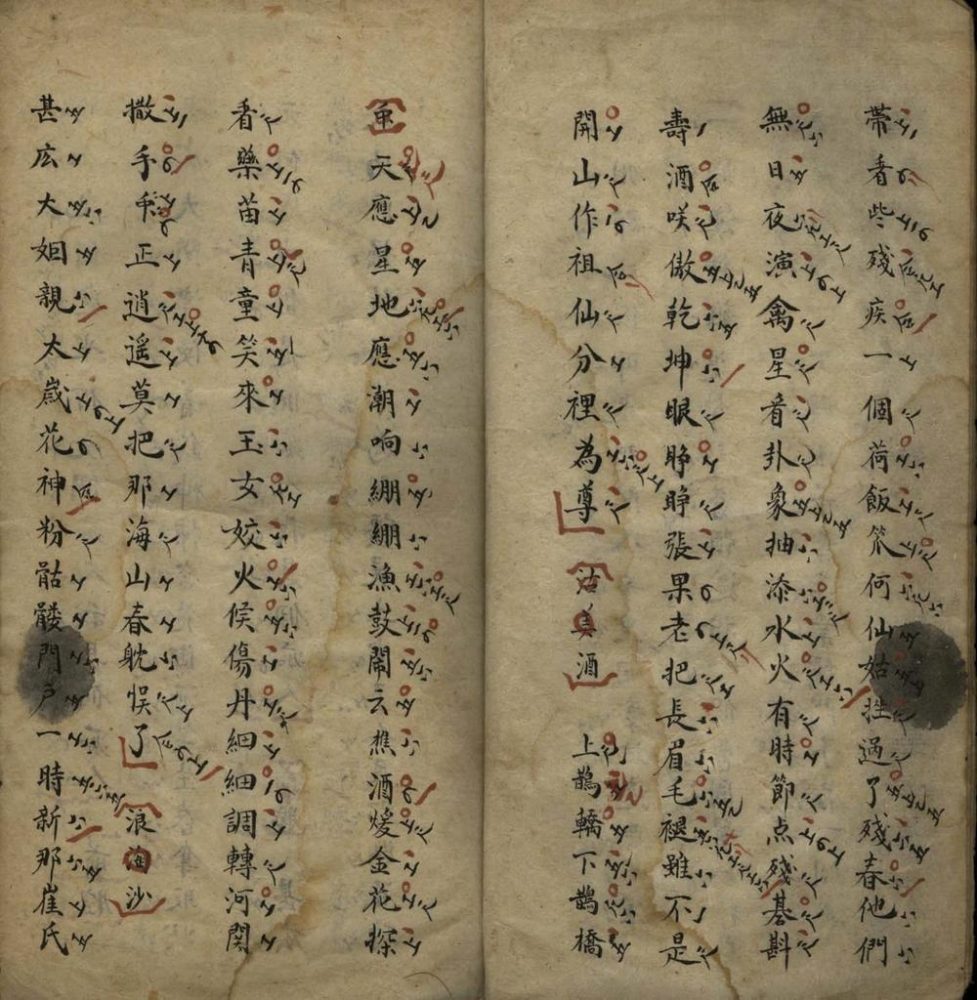 帶着些殘疾一個荷飯笊何仙姑挫過了殘春他們
無日夜演禽星看卦象抽添水火有時節点殘碁斟
壽酒咲傲乾坤眼睁睁張果老把長眉毛褪雖不是
開山作祖仙分裡為尊 沽美酒 上鵲轎下鵲橋
天應星地應潮响綳綳漁鼓鬧云樵酒煖金花探
看藥苗青童笑來玉女姣火候傷丹細細調轉河関
撒手正逍遥莫把那海山春躭悮了 浪淘沙
甚広大姐親太歲花神粉骷髅門戶一時新那崔氏